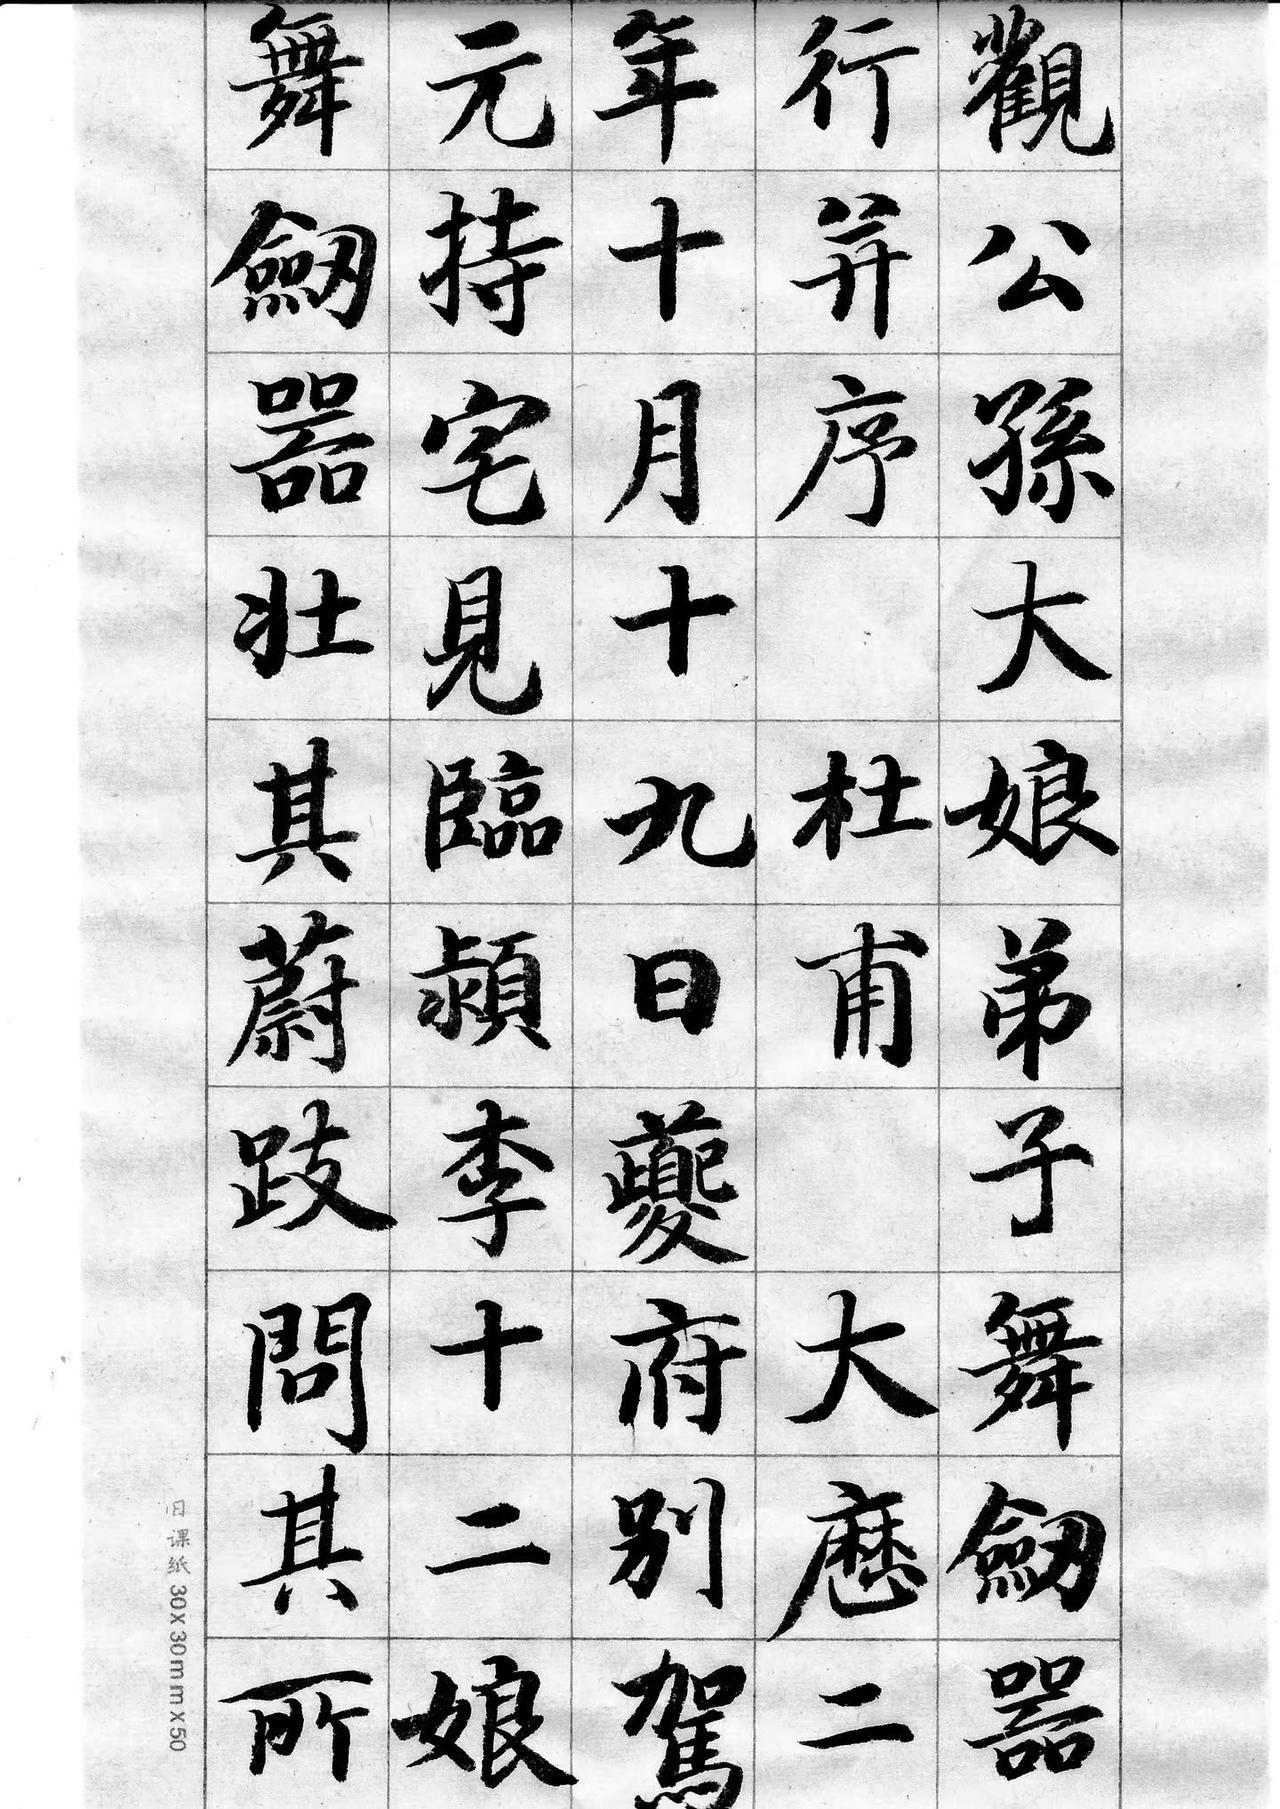 觀公孫大娘弟子舞劒器
行并序 杜甫 大曆二
年十月十九日夔府別駕
元持宅見臨潁李十二娘
舞劒器壯其蔚跂問其所
旧课纸 30x30mmx50